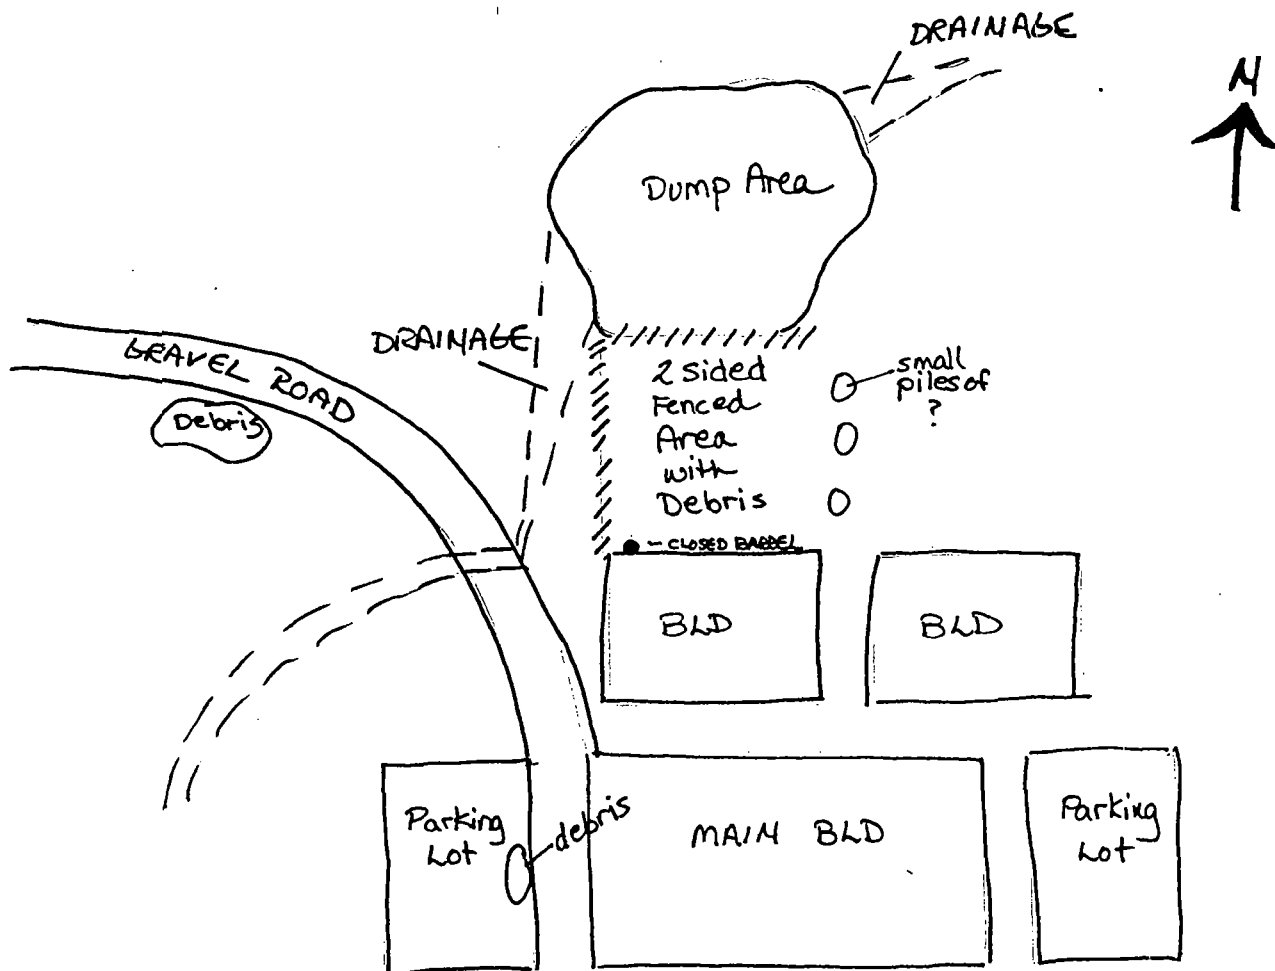 DRAINAGE
N
Dump Area
DRAINAGE
GRAVEL ROAD
Debris
2 sided
Fenced
Area
with
Debris
small
piles of
?
- CLOSED BARREL
BLD
BLD
Parking
Lot
debris
MAIN BLD
Parking
Lot